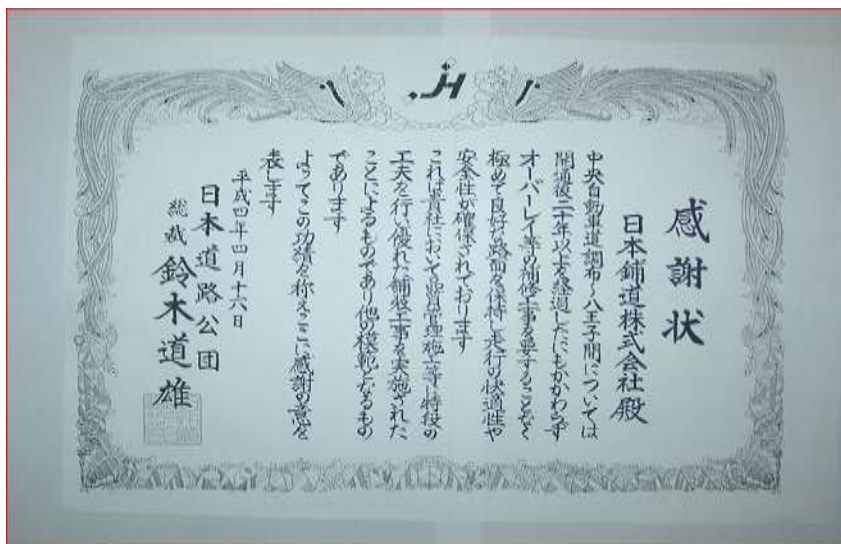 JH
感謝状
日本鋪道株式会社殿
中央自動車道調布〜八王子間については
開通後二十年以上を経過したにもかかわらず
オーバーレイ等の補修工事を要することなく
極めて良好な路面を保持し走行の快適性や
安全性が確保されております
これは貴社において品質管理施工等に特段の
工夫を行い優れた舗装工事を実施された
ことによるものであり他の模範となるもの
であります
よってこの功績を称えここに感謝の意を
表します
平成四年四月十六日
日本道路公団
総裁 鈴木道雄